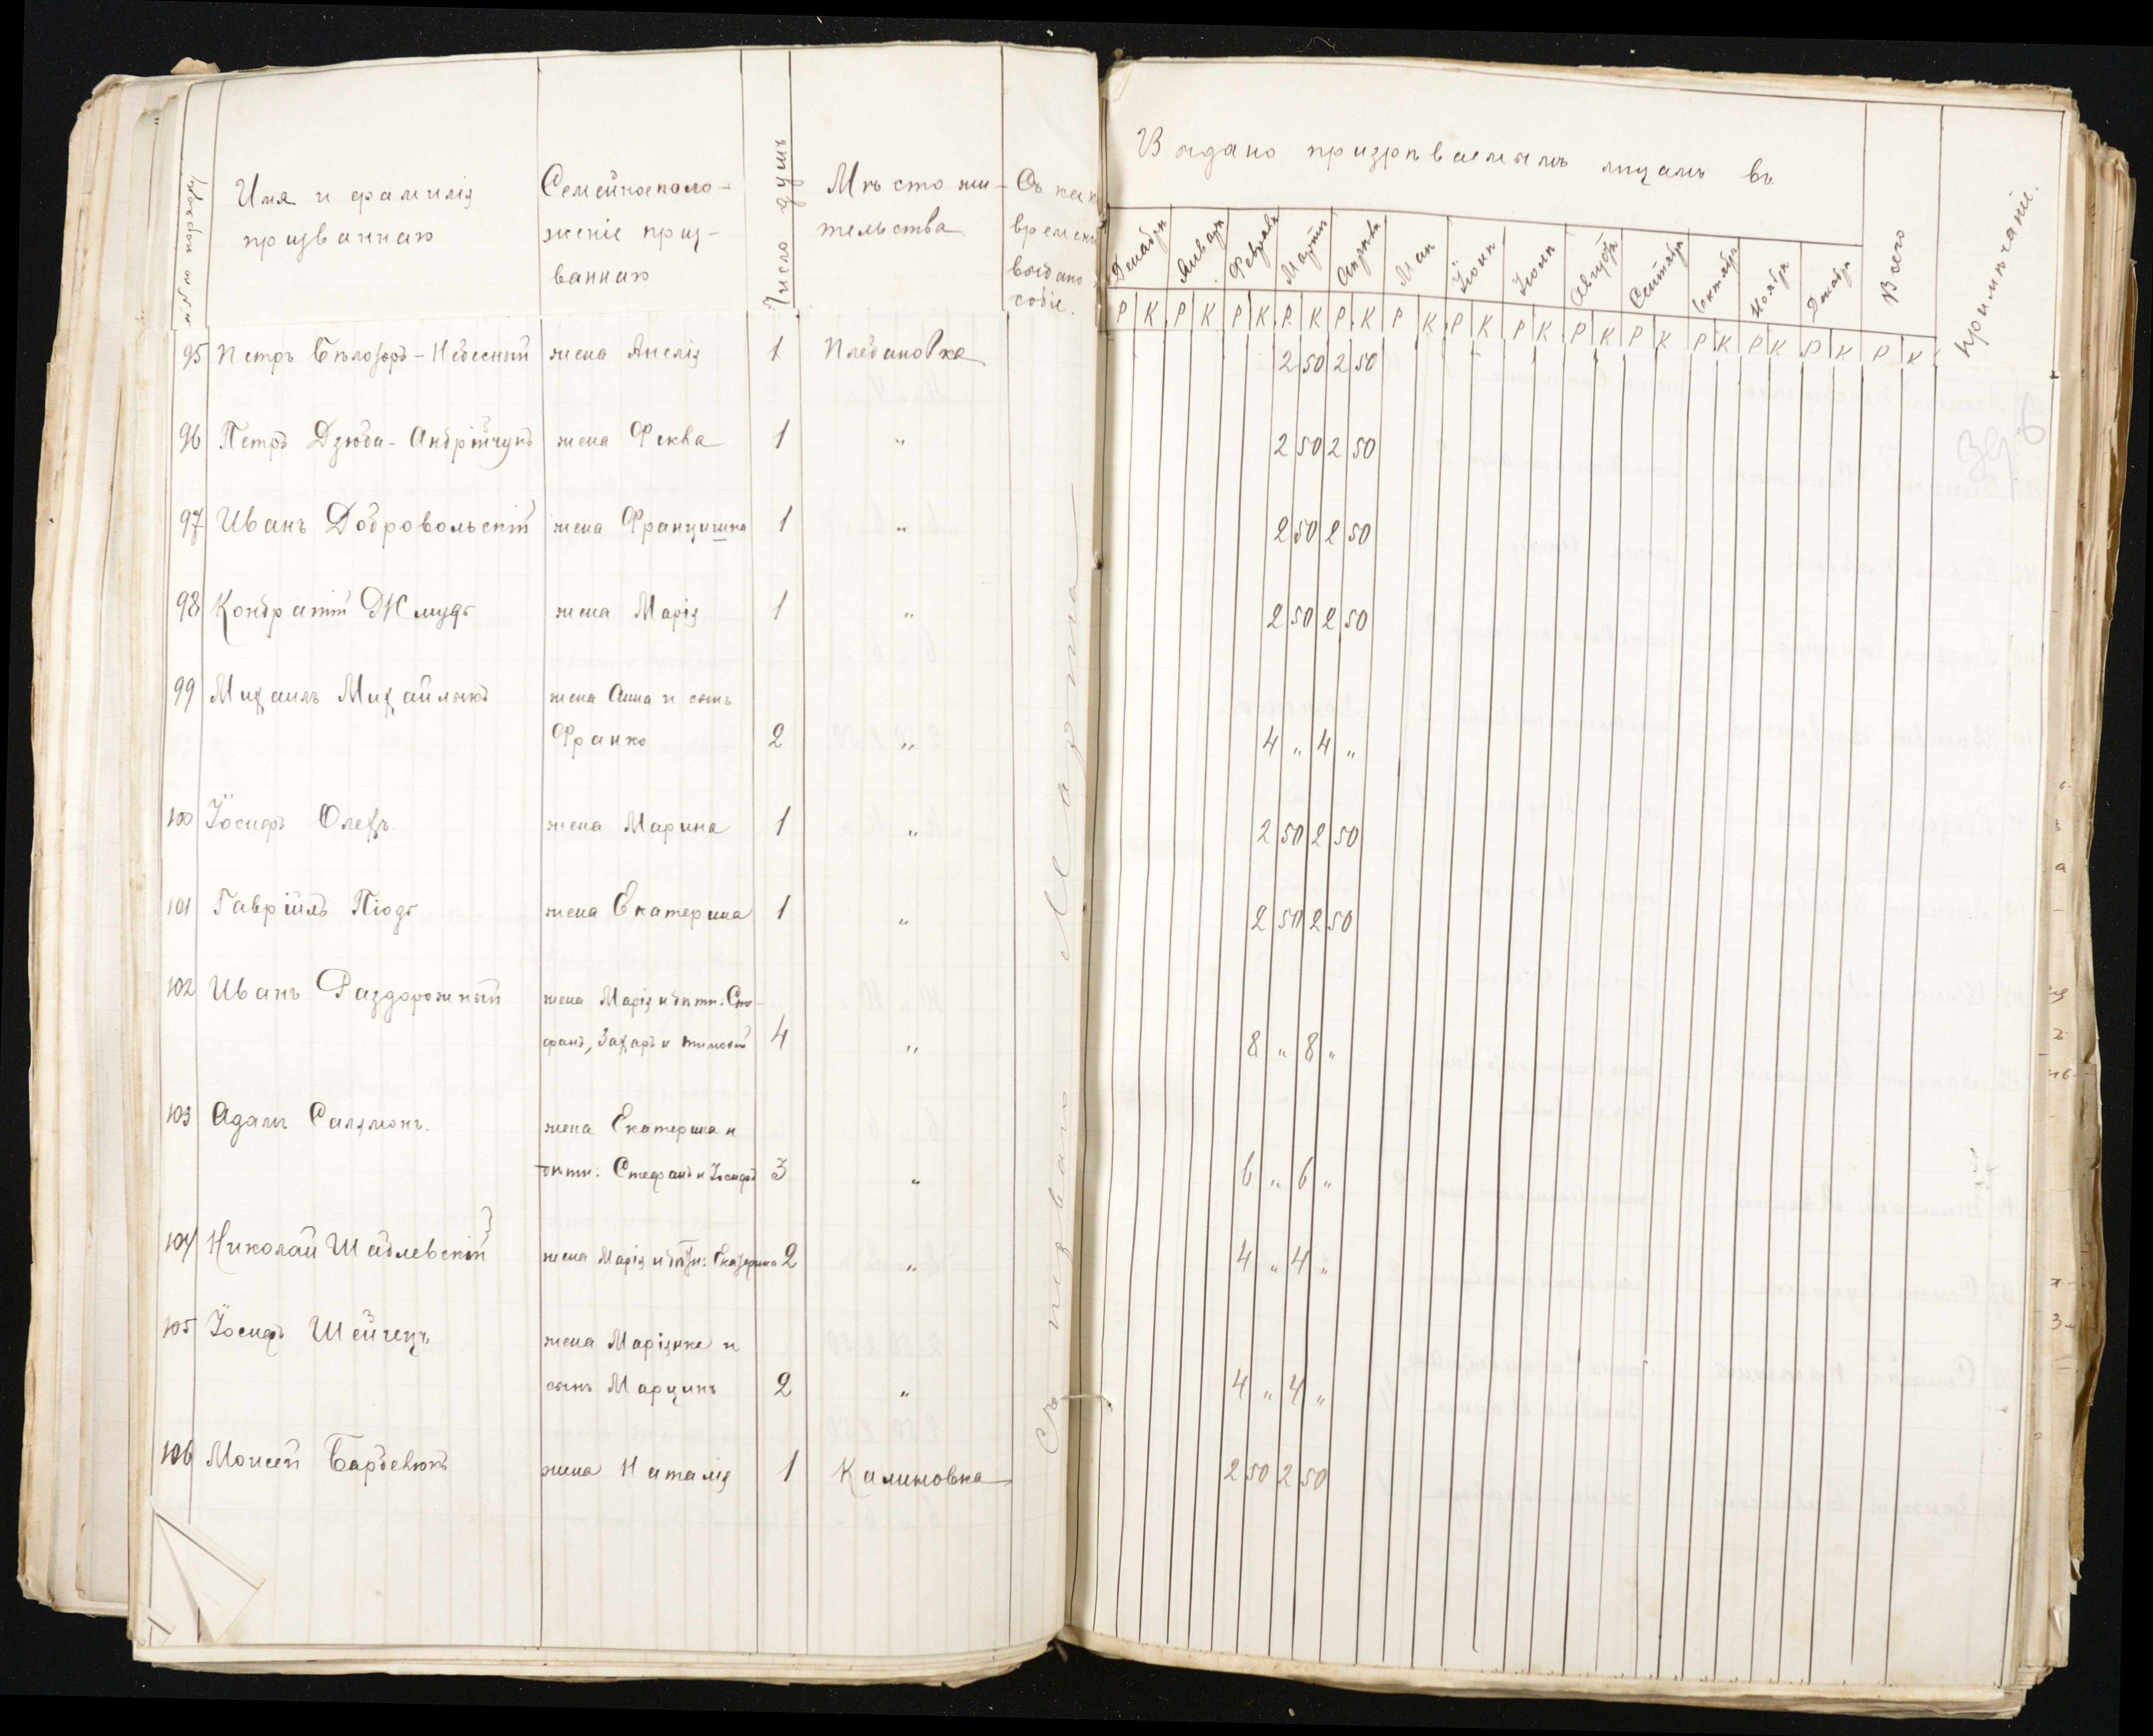 Имя и фамилія
призваннаго
Семейное поло-
женіе приз-
ваннаго
Число душъ
Мѣсто жи-
тельства
Съ как
времени
выдано
собіе.
Выдано призрѣваемымъ лицамъ въ
Декабрь Январь Февраль Мартъ Апрѣль Май Іюнь Іюль Августъ Сентябрь Октябрь Ноябрь Декабрь Всего Примѣчаніе.
Р К Р К Р К Р К Р К Р К Р К Р К Р К Р К Р К Р К Р К Р К
95 Петръ Бѣлозоръ-Небесный жена Анелія 1 Плебановка 2 50 2 50
96 Петръ Дзюба-Андрійчукъ жена Феква 1 " 2 50 2 50
97 Иванъ Добровольскій жена Францишка 1 " 2 50 2 50
98 Кондратій Жмудь жена Марія 1 " 2 50 2 50
99 Михаилъ Михайлюкъ жена Анна и сынъ
Франко 2 " 4 " 4 "
100 Іосифъ Олехъ жена Марина 1 " 2 50 2 50
101 Гавріилъ Піодъ жена Екатерина 1 " 2 50 2 50
102 Иванъ Раздорожный жена Марія и дѣти: Сте-
фанъ, Захаръ и Тимофей 4 " 8 " 8 "
103 Адамъ Салямонъ. жена Екатерина и
дѣти: Стефанъ и Іосифъ 3 " 6 " 6 "
104 Николай Шадлевскій жена Марія и дѣти: Екатерина 2 " 4 " 4 "
105 Іосифъ Шейгецъ жена Маріянна и
сынъ Марцинъ 2 " 4 " 4 "
106 Моисей Барделюкъ жена Наталія 1 Калиновка 2 50 2 50
Съ перваго Марта